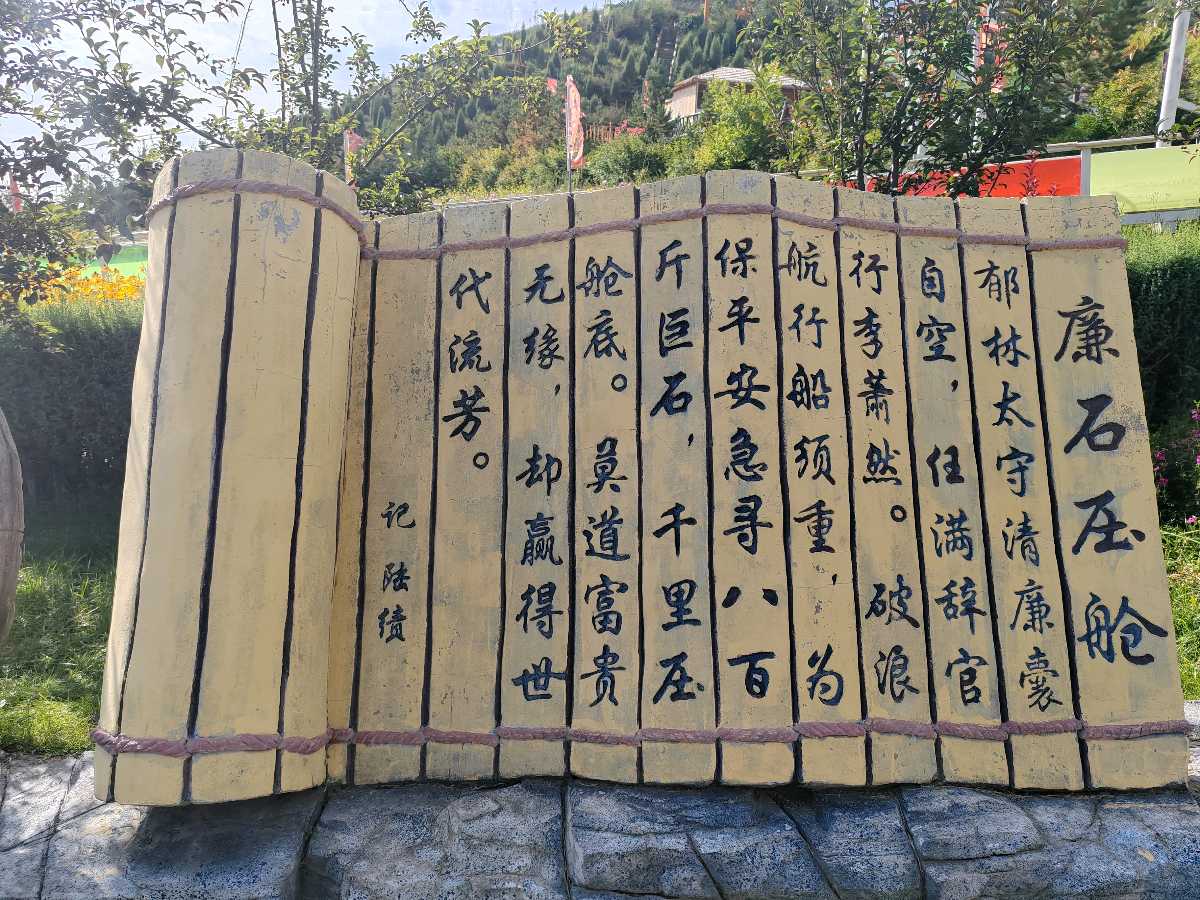 廉石压舱
郁林太守清廉囊
自空，任满辞官
行李萧然。破浪
航行船须重，为
保平安急寻八百
斤巨石，千里压
舱底。莫道富贵
无缘，却赢得世
代流芳。
记陆绩